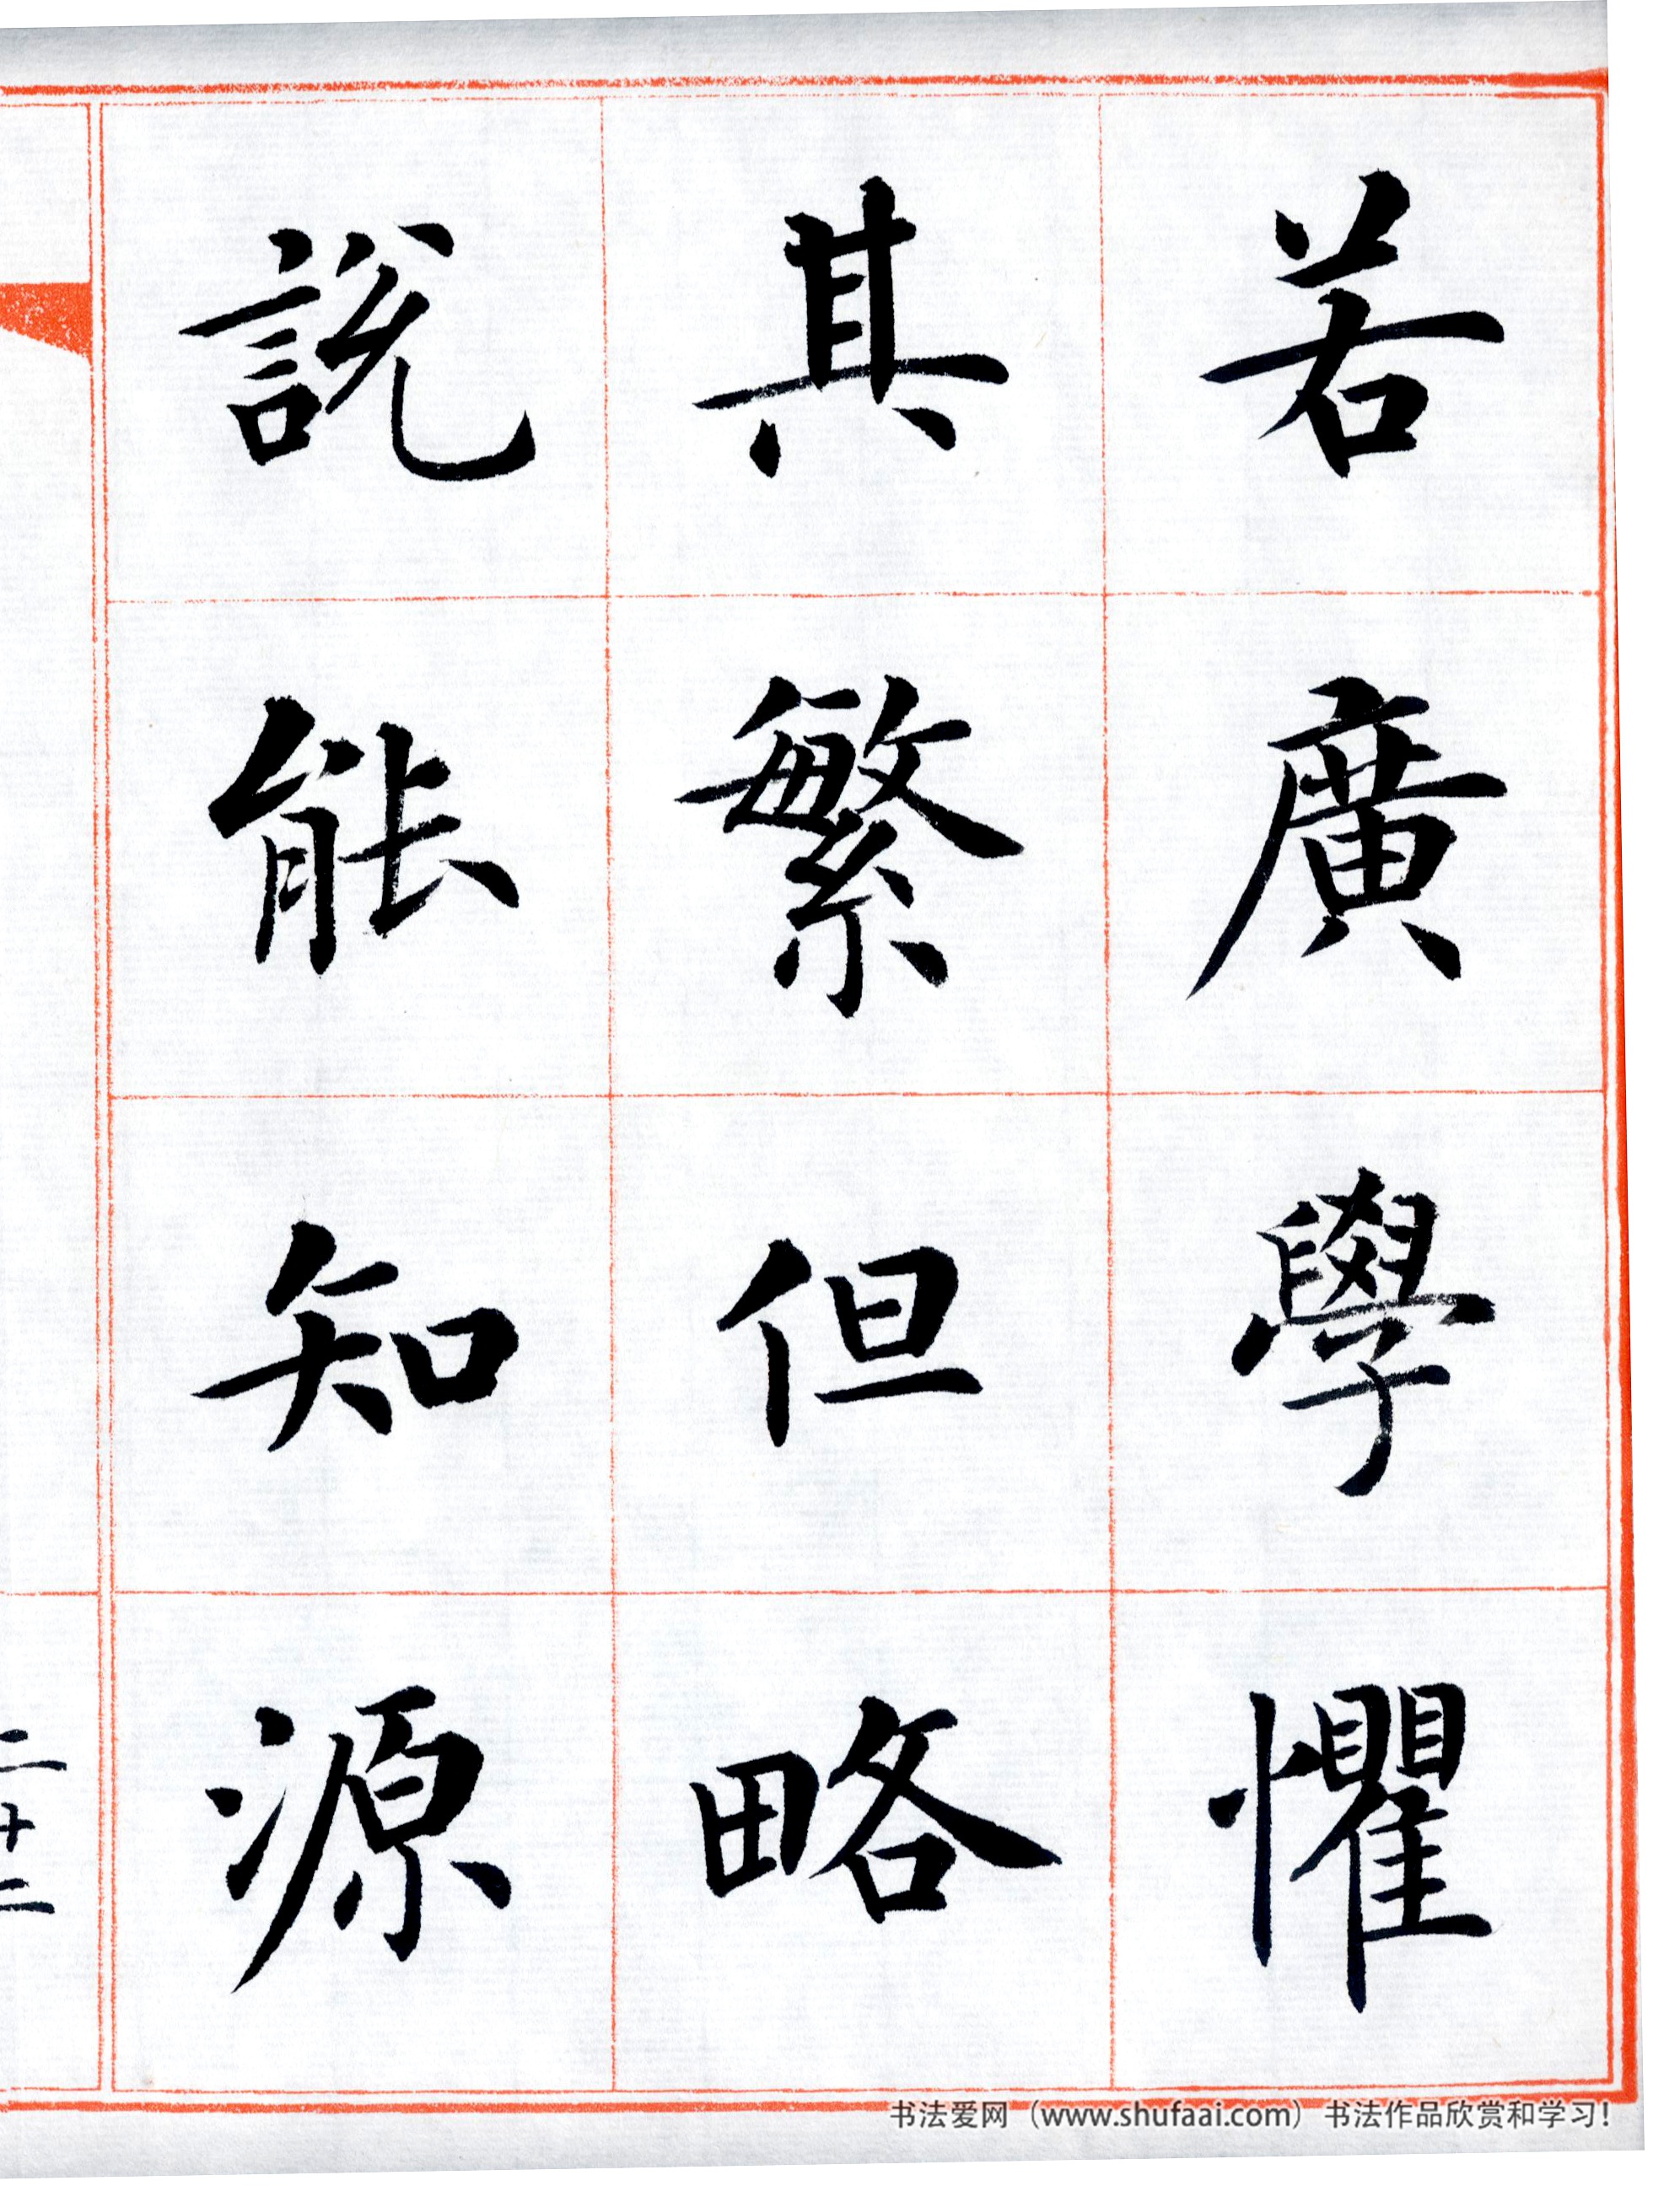 若廣學懼
其繁但略
說能知源
二十二
书法爱网（www.shufaai.com）书法作品欣赏和学习！